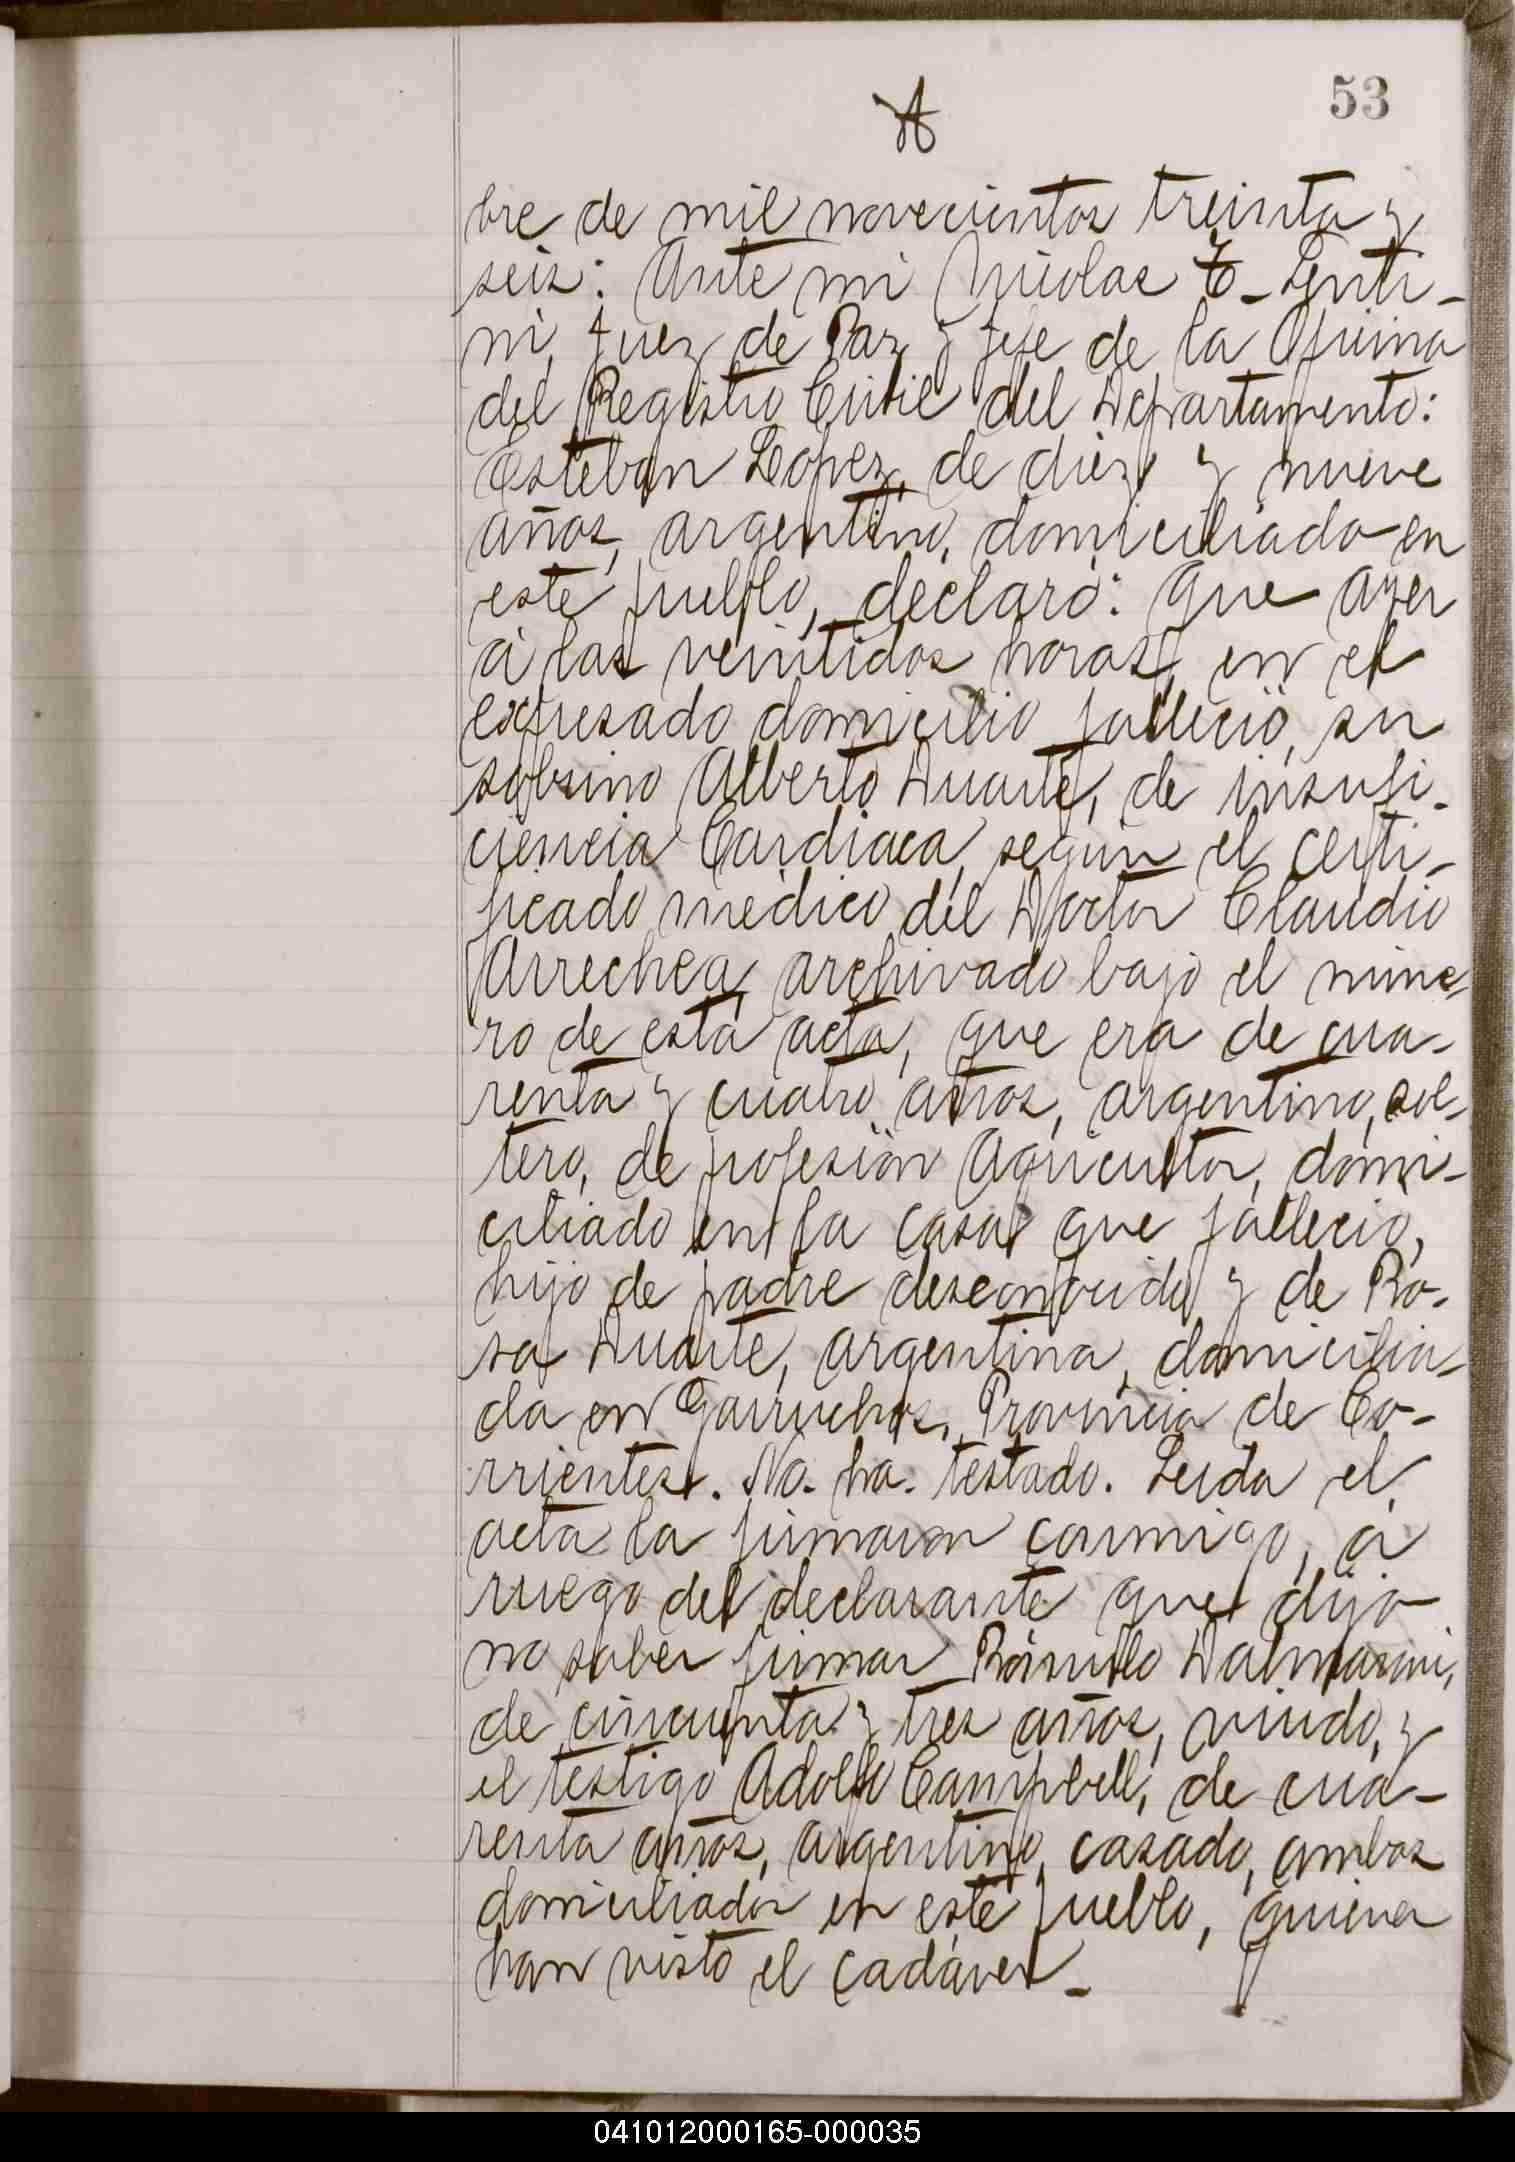 53
bre de mil novecientos treinta y
seis: Ante mi Nicolas T. Senti-
ni, Juez de Paz y Jefe de la Oficina
del Registro Civil del Departamento:
Esteban Lopez, de diez y nueve
años, argentino, domiciliado en
este pueblo, declaró: Que ayer
á las veintidos horas, en el
expresado domicilio falleció, su
sobrino Alberto Duarte, de insufi-
ciencia Cardiaca, según el certi-
ficado médico del Doctor Claudio
Arrechea, archivado bajo el núme-
ro de esta acta, que era de cua-
renta y cuatro años, argentino, sol-
tero, de profesión Agricultor, domi-
ciliado en la casa que falleció,
hijo de padre desconocido y de Ro-
sa Duarte, argentina, domicilia-
da en Garruchos, Provincia de Co-
rrientes. No. ha. testado. Leida el
acta la firmaron conmigo, á
ruego del declarante que dijo
no saber firmar Rómulo Dalmaroni,
de cincuenta y tres años, viudo, y
el testigo Adolfo Campbell, de cua-
renta años, argentino, casado, ambos
domiciliados en este pueblo, quienes
han visto el cadáver.-
041012000165-000035